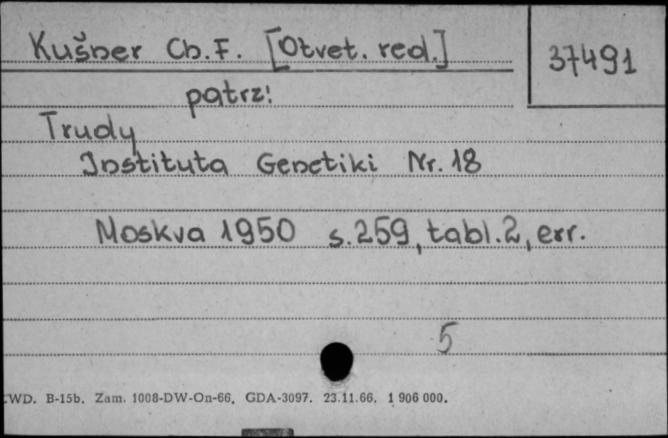 Kušner Ch. F. [Otvet. red.]
37491
patrz:
Trudy
Instituta Genetiki Nr. 18
Moskva 1950 s. 259, tabl. 2, err.
5
WD. B-15b. Zam. 1008-DW-On-66. GDA-3097. 23.11.66. 1 906 000.